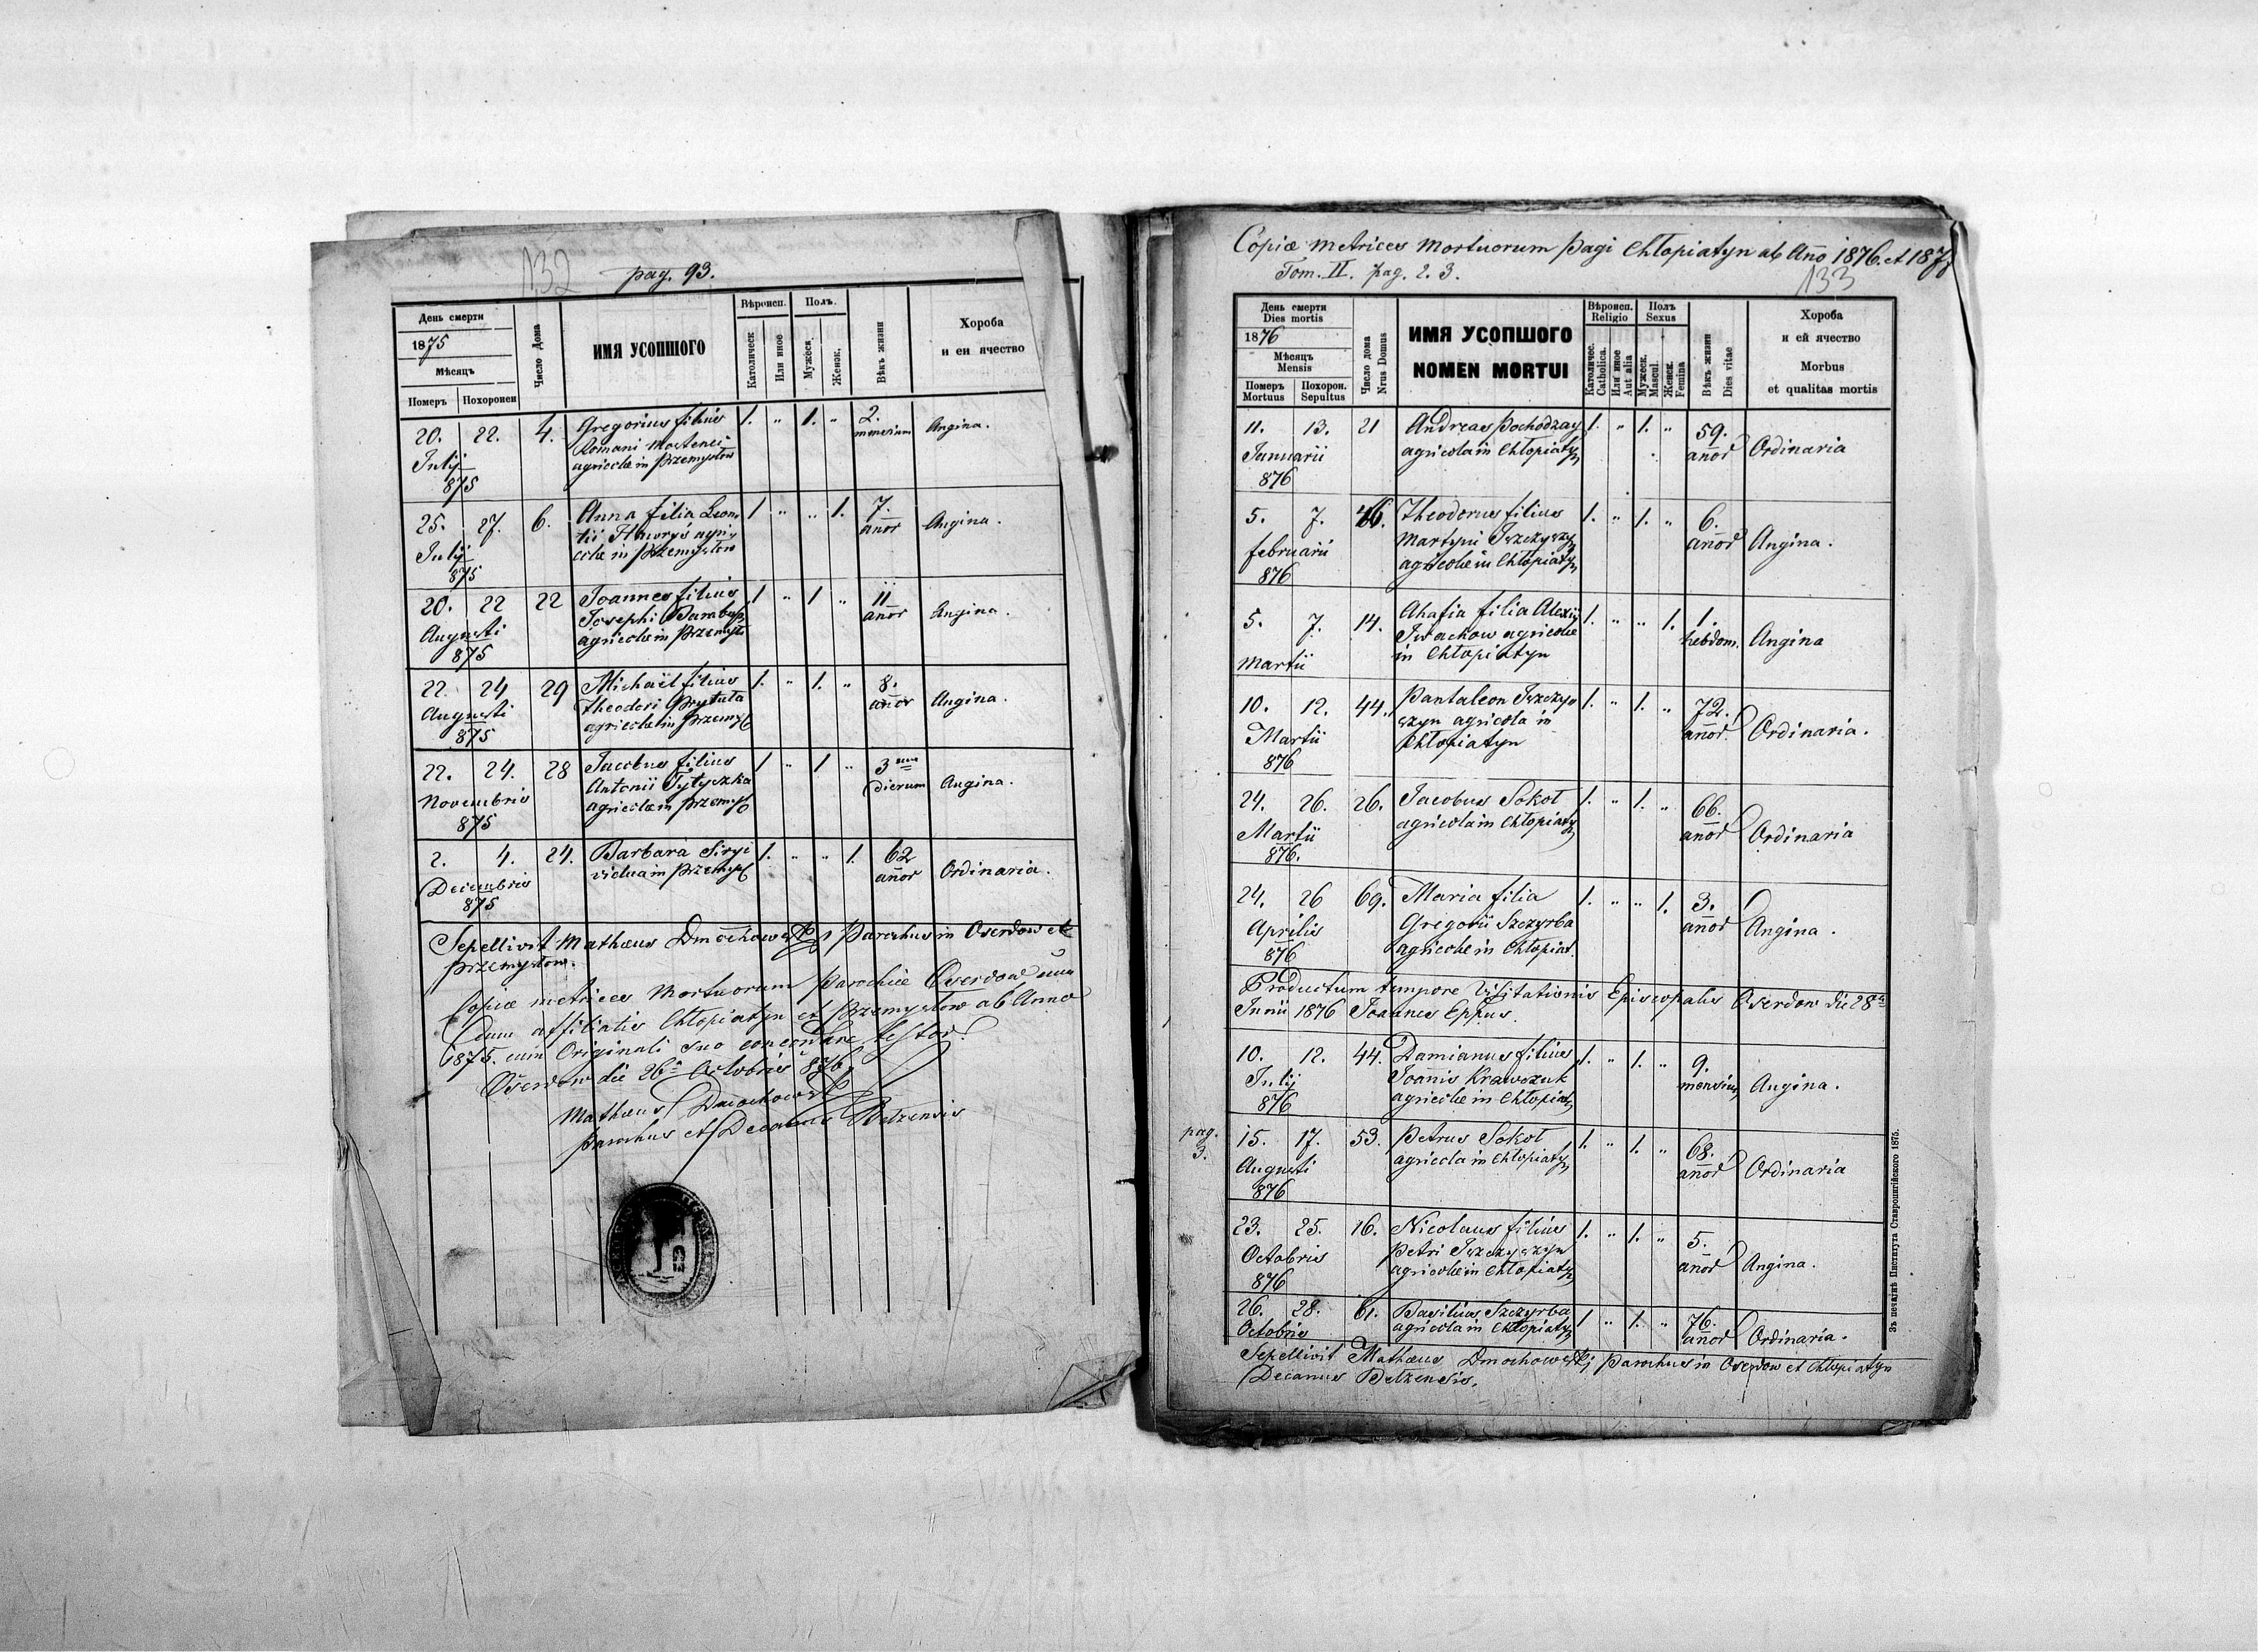 132
pag. 93.
День смерти
1875
Мѣсяцъ
Померъ
Похоронен
Число Дома
ИМЯ УСОПШОГО
Вѣроисп.
Католическ
Или иное
Полъ.
Мужеск
Женск.
Вѣкъ жизни
Хороба
и еи ячество
20. 22. 4. Gregorius filius 1. " 1. " 2. Angina.
Julij Romani mensium
875 agricolæ in Przemysłów
25. 27. 6. Anna filia Leon- 1 " " 1. 7. Angina.
Julij tii agri- anor
875 colæ in Przemysłów
20. 22 22 Joannes filius 1 " 1 " 11 Angina.
Augusti Josephi anor
875 agricolæ in Przemysł
22. 24 29 Michaël filius 1. " 1. " 8. Angina.
Augusti Theodori Prytuła anor
875 agricolæ in Przemysł
22. 24. 28 Jacobus filius 1 " 1 " 3 Angina.
Novembris Antonii Tytyszka dierum
875 agricolæ in Przemysł
2. 4. 24. Barbara Siryi 1. " " 1. 62 Ordinaria.
Decembris vidua in Przemysł anor
875
Sepellivit Mathæus Dmochowski Parochus in Oserdow et
Przemysłow.
Copiæ metrices Mortuorum Parochiæ Oserdow una
cum affiliatis Chłopiatyn et Przemysłow ab Anno
1875. cum Originali suo concordare testor.
Oserdow die 26a Octobris 876
Mathæus Dmochowski
Parochus et Decanus Bełzensis
Copiæ metrices Mortuorum pagi Chłopiatyn ab Ano 1876. et 1877
Tom. II. pag. 2. 3.
133
День смерти
Dies mortis
1876
Мѣсяцъ
Mensis
Померъ
Mortuus
Похорон.
Sepultus
Число дома
Nrus Domus
ИМЯ УСОПШОГО
NOMEN MORTUI
Вѣроисп.
Religio
Католичес.
Catholica.
Или иное
Aut alia
Полъ
Sexus
Мужеск.
Mascul.
Женск.
Femina
Вѣкъ жизни
Dies vitae
Хороба
и ей ячество
Morbus
et qualitas mortis
11. 13. 21 Andreas Pochodzay 1. " 1. " 59. Ordinaria
Januarii agricola in Chłopiatyn anor
876
5. 7. 46. Theodorus filius 1. " 1. " 6. Angina.
februarii Martyni Iszczyszyn anor
876 agricolæ in Chłopiatyn
5. 7. 14. Ahafia filia Alexii 1. " " 1. 1. Angina
Martii Iwachow agricolæ hebdom.
in Chłopiatyn
10. 12. 44. Pantaleon Iszczy- 1. " 1. " 72. Ordinaria.
Martii szyn agricola in anor
876 Chłopiatyn
24. 26. 26. Jacobus Sokoł 1. " 1. " 66. Ordinaria
Martii agricola in Chłopiatyn anor
876.
24. 26 69. Maria filia 1. " " 1. 3. Angina.
Aprilis Gregorii Szczyrba anor
876 agricolæ in Chłopiat.
Productum tempore Visitationis Episcopalis Oserdow die 28a
Junii 1876 Joannes Eppus.
10. 12. 44. Damianus filius 1. " 1. " 9. Angina.
Julij Joannis Krawczuk mensium
876 agricolæ in Chłopiat
pag.
3.
15. 17. 53. Petrus Sokoł 1. " 1. " 68. Ordinaria
Augusti agricola in Chłopiatyn anor
876
23. 25. 16. Nicolaus filius 1. " 1. " 5. Angina.
Octobris Petri Iszczyszyn anor
876 agricolæ in Chłopiatyn
26. 28. 61. Basilius Szczyrba 1 " 1. " 76. Ordinaria.
Octobris agricola in Chłopiatyn anor
Sepellivit Mathæus Dmochowskj Parochus in Oserdow et Chłopiatyn
Decanus Bełzensis.
Зъ печатнѣ Института Ставропигійского 1875.